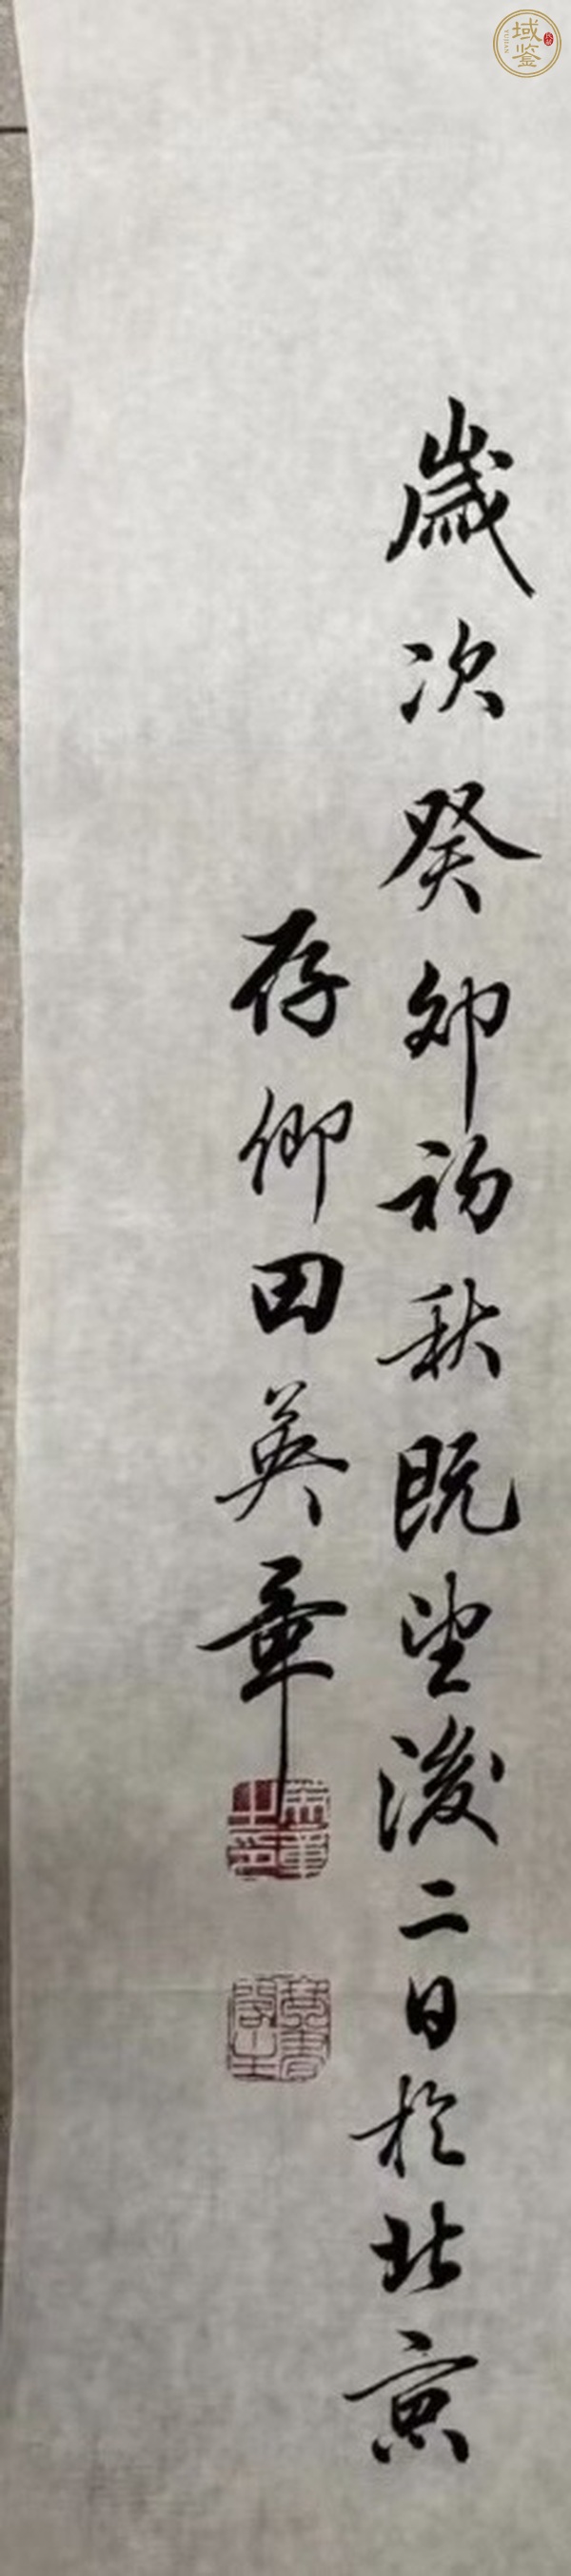 歲次癸卯初秋既望後二日於北京
存卿田英章
域鉴
YUJIAN